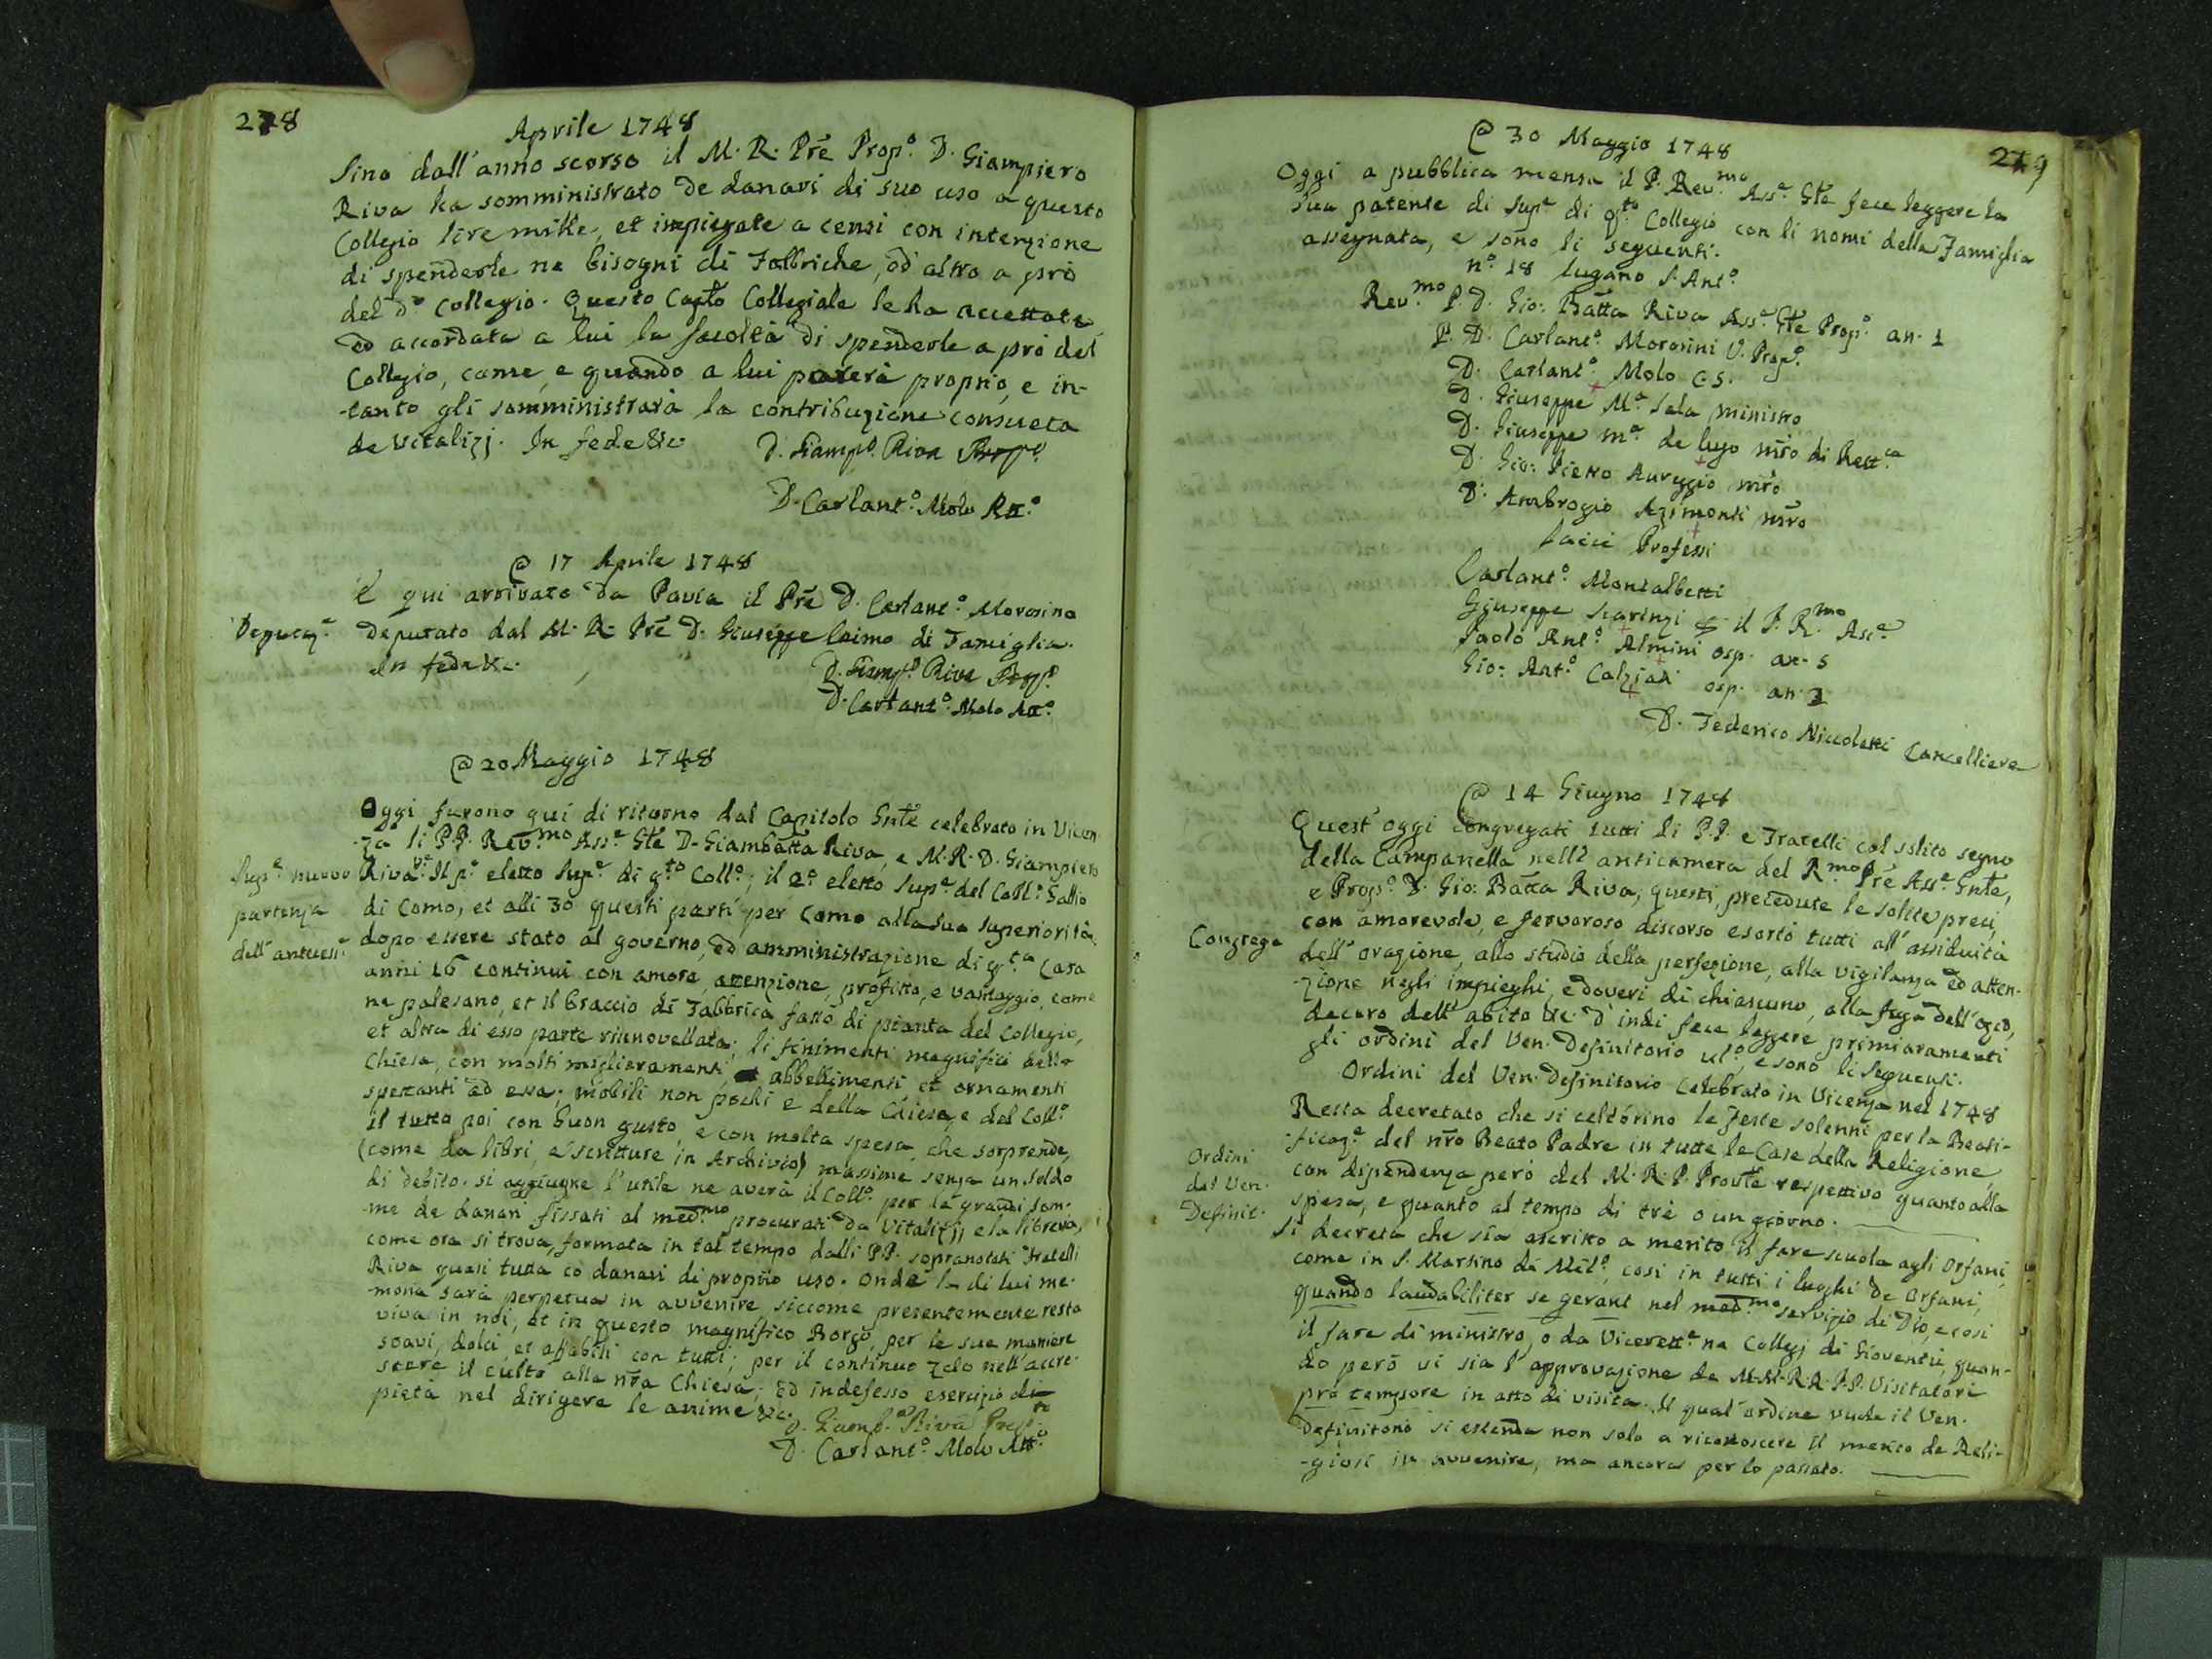 278
Aprile 1748
Sino dall'anno scorso il M. R. Prẽ Prop.º D. Giampiero
Riva ha somministrato de danari di suo uso a questo
Collegio lire mille, et impiegate a censi con intenzione
di spenderle ne bisogni di Fabbriche, od altro a prò
del dº Collegio. Questo Capto Collegiale le ha accettate
ed accordata a lui la facoltà di spenderle a prò del
Collegio, come, e quando a lui parerà proprio, e in-
-tanto gli somministrarà la contribuzione consueta
de Vitalizj. In fede &c.
D. Giamp.º Riva Prop.º
D. Carlant.º Molo Att.º
@ 17 Aprile 1748
Deputaz.e
È qui arrivato da Pavia il Prẽ D. Carlant.º Morosino
Deputato dal M. R. Prẽ D. Giuseppe Caimo di Famiglia.
In fede &c.
D. Giamp.º Riva Prop.º
D. Carlant.º Molo Att.º
@ 20 Maggio 1748
Oggi furono quí di ritorno dal Capitolo Gnte celebrato in Vicen-
-za li P.P. Rev.mo Ass.e Gte D. Giambatta Riva, e M. R. D. Giampiero
Sup.e nuovo
Riva. Il p.º eletto Sup.e di q.to Coll.º; il 2.º eletto Sup.e del Coll.º Gallio
partenza
di Como, et alli 30 questi partì per Como alla sua Superiorità
dell'antecess.e
dopo essere stato al governo, ed amministrazione di q.ta Casa
anni 16 continui con amore, attenzione, profitto, e vantaggio, come
ne palesano, et il braccio di Fabbrica fatto di pianta del Collegio,
et altra di esso parte rinnovellata; li finimenti magnifici della
Chiesa, con molti miglioramenti, abbellimenti et ornamenti
spettanti ad essa; mobili non pochi e della Chiesa, e del Coll.º
il tutto poi con buon gusto, e con molta spesa, che sorprende,
(come da libri, e scritture in Archivio) massime senza un soldo
di debito. Si aggiugne l'utile ne averà il Coll.º per la grandi som-
-me de danari fissati al med.mo procurati da Vitalizj; e la libreria,
come ora si trova, formata in tal tempo dalli P.P. sopranotati Fratelli
Riva quasi tutta co danari di proprio uso. Onde la di lui me-
-moria sarà perpetua in avvenire, siccome presentemente resta
viva in noi, et in questo magnifico Borgo, per le sue maniere
soavi, dolci, et affabili con tutti; per il continuo zelo nell'accre-
scere il culto alla nr̃a Chiesa; ed indefesso esercizio di
pietà nel dirigere le anime &c.
D. Giamb.a Riva Prep.to
D. Carlant.º Molo Att.º
279
@ 30 Maggio 1748
Oggi a pubblica mensa il P. Rev.mo Ass.e Gte fece leggere la
sua patente di Sup.e di q.to Collegio con li nomi della Famiglia
assegnata, e sono li seguenti.
n.º 18 Lugano S. Ant.º
Rev.mo P. D. Gio: Batta Riva Ass.e Gte Prop.º an. 1
P. D. Carlant.º Morosini V. Prop.º
D. Carlant.º Molo C.S.
D. Giuseppe M.a Sala ministro
D. Giuseppe M.a de Lugo mr̃o di Rett.ca
D. Gio: Pietro Aureggio mr̃o
D. Ambrogio Azimonti mr̃o
Laici Professi
Carlant.º Montalbetti
Giuseppe Scarinzi il P. R.mo Ass.e
Paolo Ant.º Almini osp. an. 5
Gio: Ant.º Calzian osp. an. 2
D. Federico Niccoletti Cancelliere
@ 14 Giugno 1748
Quest'oggi congregati tutti li P.P. e Fratelli col solito segno
della Campanella nell'anticamera del R.mo Prẽ Ass.e Gnte,
e Prop.º D. Gio: Batta Riva, questi, precedute le solite preci,
con amorevole, e fervoroso discorso esortò tutti all'assiduità
Congrega
dell'orazione, allo studio della perfezione, alla vigilanza ed atten-
-zione negli impieghi, e doveri di chiascuno, alla fuga dell'ozio,
decoro dell'abito &c. D'indi fece leggere primieramenti
gli ordini del Ven. Definitorio ul.º, e sono li seguenti.
Ordini del Ven. Definitorio Celebrato in Vicenza nel 1748
Resta decretato che si celebrino le feste solenni per la Beati-
Ordini
del Ven.
Definit.
-ficaz.e del nr̃o Beato Padre in tutte le Case della Religione,
con dipendenza però del M. R. P. Prov̄le respettivo quanto alla
spesa, e quanto al tempo di trè o un giorno.
Si decreta che sia ascritto a merito il fare scuola agli Orfani,
come in S. Martino di Mil.º, così in tutti i luoghi de Orfani,
quando laudabiliter se gerant nel med.mo servizio di Dio, e così
il fare di ministro, o da Vicerett.e ne Collegj di Gioventù, quan-
do però vi sia l'approvazione de M.M. R.R. P.P. Visitatori
pro tempore in atto di visita. Il qual'ordine vuole il Ven.
Definitorio si estenda non solo a riconoscere il merito de Reli-
-giosi in avvenire, ma ancora per lo passato.